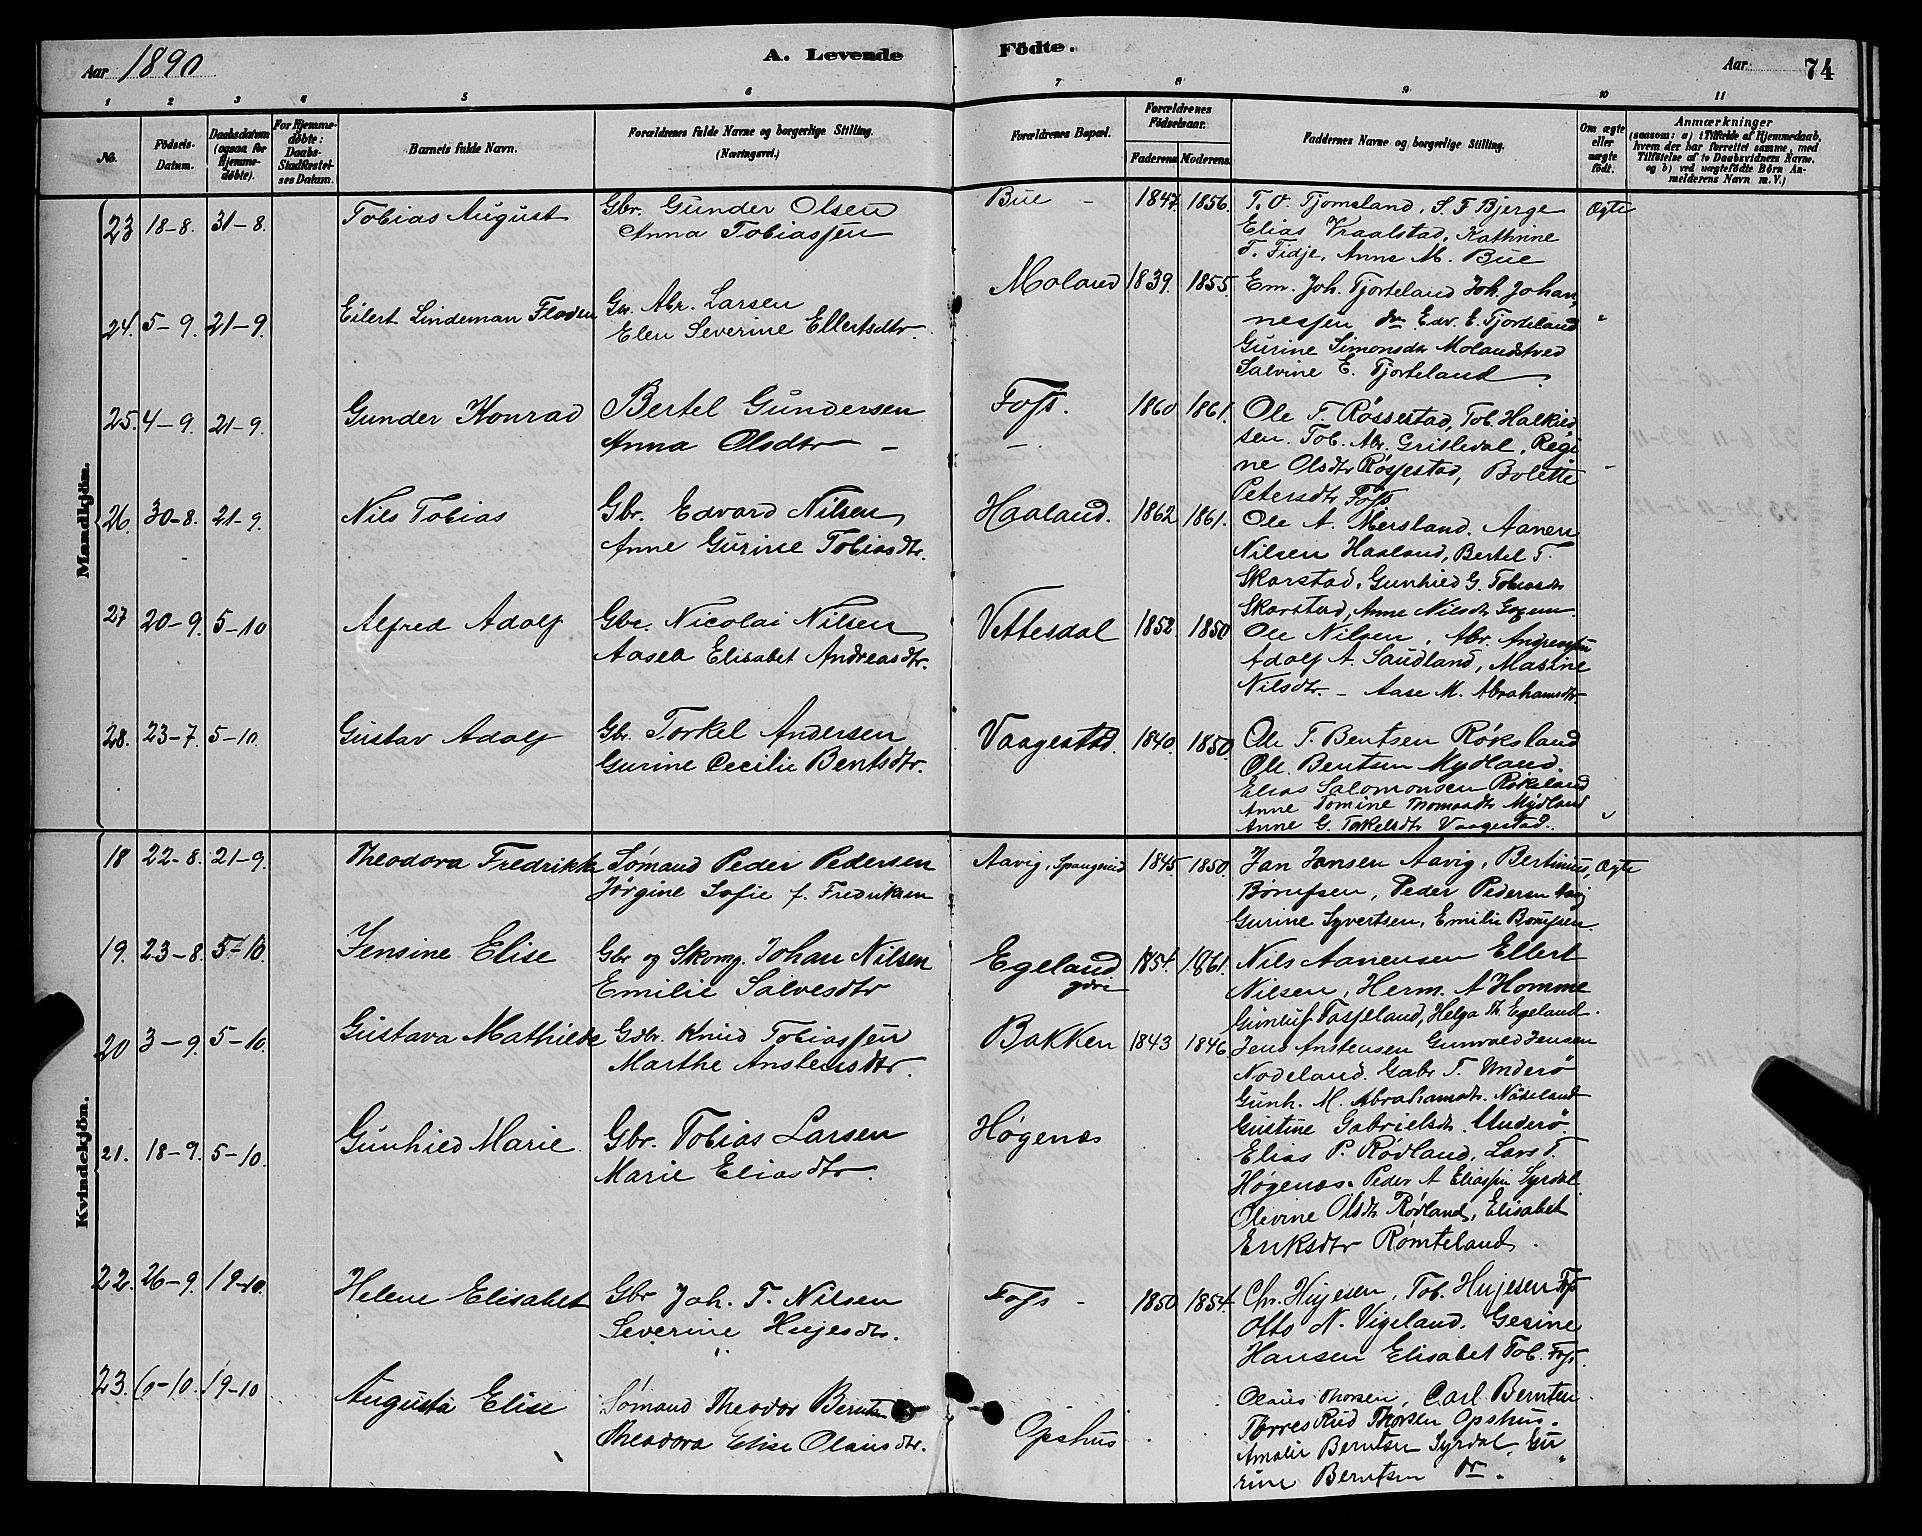 Aar 1890 A. Levende Födte. Aar 74
1 2 3 4 5 6 7 8 9 10 11
No. Födsels-Datum. Daabsdatum (ogsaa for Hjemmedøbte). For Hjemmedøbte: Daabs-Stadfæstelses Datum. Barnets fulde Navn. Forældrenes fulde Navne og borgerlige Stilling. (Næringsvei.) Forældrenes Bopæl. Forældrenes Födselsaar. Faderens Moderens Faddernes Navne og borgerlige Stilling. Om ægte eller uægte født. Anmærkninger (saasom: a) i Tilfælde af Hjemmedaab, hvem der har forrettet samme, med Tilføielse af to Daabsvidners Navne. og b) ved uægtefødte Børn Anmelderens Navn m. V.)
Mandkjön.
23 18-8. 31-8. Tobias August Gbr. Gunder Olsen Bue - 1847. 1856. T. O. Tjomsland, S. F Bjerge Ægte
Anna Tobiassen Elias Vraalstad, Kathrine
T. Fidje, Anne M. Bue
24. 5-9. 21-9. Eilert Lindeman Floden Gbr. Abr. Larsen Moland 1839. 1855. Em. Joh. Tjorteland Joh. Johan,
Elen Severine Ellertsdtr. nessen do Edv. E. Tjorteland "
Gurine Simonsdtr Molandstved
Salvine E. Tjorteland
25. 4-9. 21-9. Gunder Konrad Bertel Gundersen Foss. 1860 1861. Ole T. Røssestad, Tob. Halkied
Anna Olsdtr - - sen. Tob. Abr. Gritledal, Regi
ne Olsdtr Røssestad, Bolette -
Petersdtr Foss
26. 30-8. 21-9. Nils Tobias Gbr. Edvard Nilsen Haaland. 1862 1861. Ole A. Mersland. Aanen
Anne Gurine Tobiasdtr. Nilsen Haaland, Bertel T.
Skarstad, Gunhild G. Tobiasdtr
Skarstad, Anne Nilsdtr
27 20-9. 5-10 Alfred Adolf Gbr. Nicolai Nilsen Vettesdal 1852 1850 Ole Nilsen, Abr. Andreassen
Aasea Elisabet Andreasdtr. Adolf A. Saudland, Masine
Nilsdtr. - Aase M. Abrahamsdtr
28. 23-7. 5-10. Gustav Adolf Gbr. Torkel Andersen Vaagestad. 1840. 1850. Ole T. Bentsen Røksland
Gurine Cecilie Bentsdtr. Ole Bentsen Mydland.
Elias Salomonsen Røksland
Anne Tomine Thomasdtr Mydland "
Anne G. Torkelsdtr Vaagestad.
Kvindekjön.
18 22-8. 21-9. Theodora Fredrikke Sømand Peder Pedersen Aavig, Spangereid 1845. 1850. Jan Jansen Aavig, Bertinius, Ægte
Jørgine Sofie f. Fredriksen Børufsen, Peder Pedersen Aavig
Gurine Syvertsen, Emilie Børufsen.
19. 23-8. 5-10. Jensine Elise Gbr og Skomg. Johan Nilsen Egeland 1854. 1861. Nils Aanensen Ellert
Emilie Salvesdtr øvre Nilsen, Herm. A Homme
Gunluf Fasseland, Helga Th. Egeland.
20 3-9. 5-10. Gustava Mathilde Gbr. Knud Tobiassen Bakken 1843 1846 Jens Anstensen Gunvald Jensen
Marthe Anstensdtr. Nodeland. Gabr T. Underø
Gunh. M. Abrahamsdtr. Nodeland
Gustine Gabrielsdtr. Underø.
21. 18-9. 5-10. Gunhild Marie Gbr. Tobias Larsen Høgenæs Elias P. Rødland, Lars T.
Marie Eliasdtr. Høgenæs. Peder A Eliassen Syrdal
Olevine Olsdtr Rødland, Elisabet
Eriksdtr Rømteland.
22. 26-9. 19-10. Helene Elisabet Gbr Joh. T. Nilsen Foss - 1850 1854. Chr. Hujesen, Tob. Hujesen Foss
Severine Hujesdtr. Otto N. Vigeland. Gesine
Hansen Elisabet Tob. Foss.
23. 6-10. 19-10 Augusta Elise Sømand Theodor Berntsen Olaus Thorsen, Carl Berntsen
Theodora Elise Olausdtr. Opshus Torres Rud Thorsen Opshus.
Amalie Berntsen Syrdal, Gu "
rine Berntsen do.